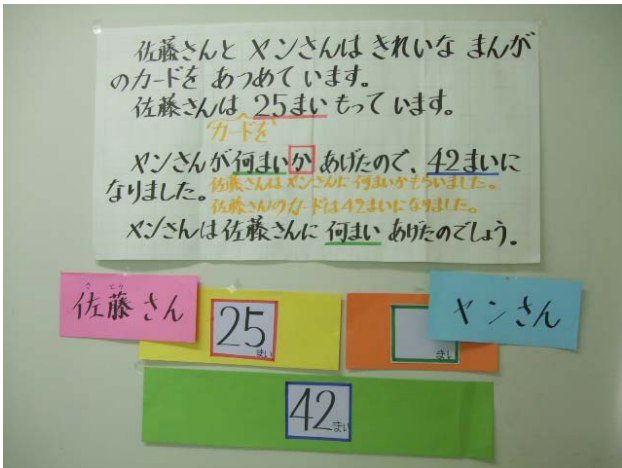 佐藤さんと ヤンさんは きれいな まんが
のカードを あつめて います。
佐藤さんは 25まい もって います。
カードを
ヤンさんが 何まいか あげたので、42まいに
なりました。佐藤さんはヤンさんに何まいかもらいました。
佐藤さんのカードは42まいになりました。
ヤンさんは 佐藤さんに 何まい あげたのでしょう。
さ とう
佐藤さん
25
まい
まい
ヤンさん
42
まい